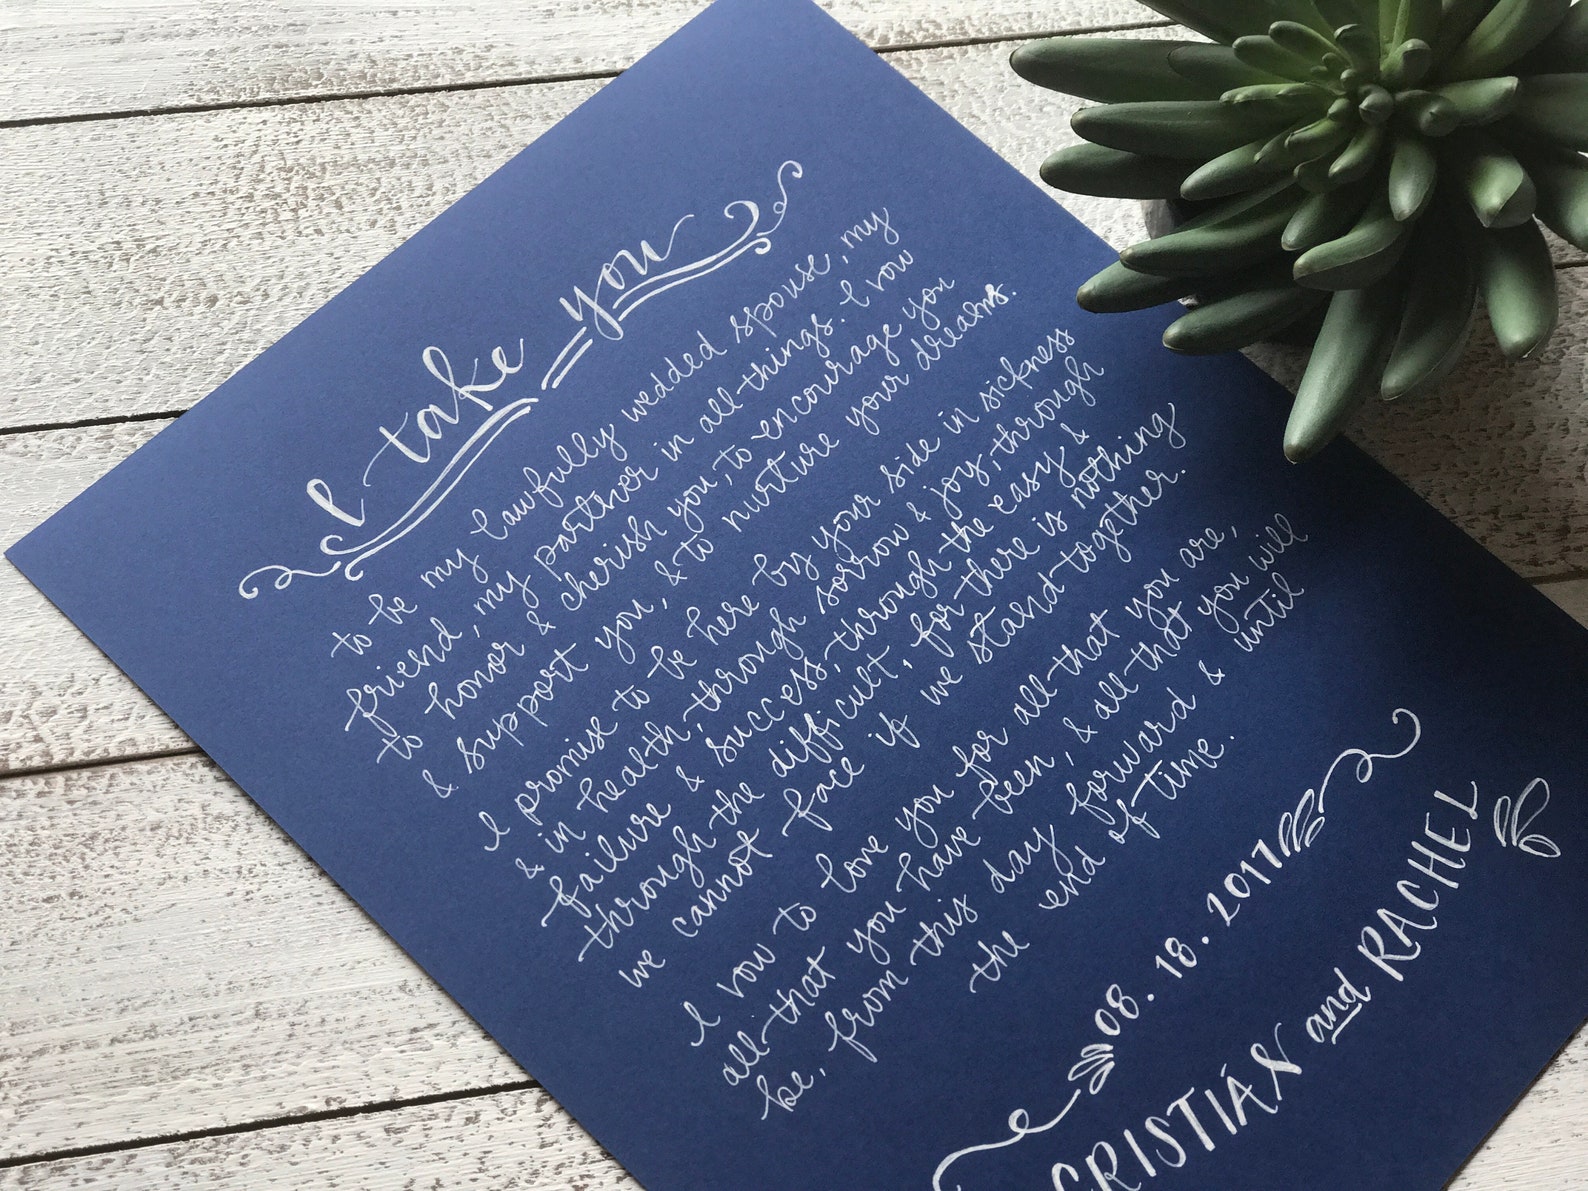 I take you
to be my lawfully wedded spouse, my
friend, my partner in all things. I vow
to honor & cherish you, to encourage you
& support you, & to nurture your dreams.
I promise to be here by your side in sickness
& in health, through sorrow & joy, through
failure & success, through the easy &
through the difficult, for there is nothing
we cannot face if we stand together.
I vow to love you for all that you are,
all that you have been, & all that you will
be, from this day forward & until
the end of time.
08.18.2017
CRISTIÁN and RACHEL